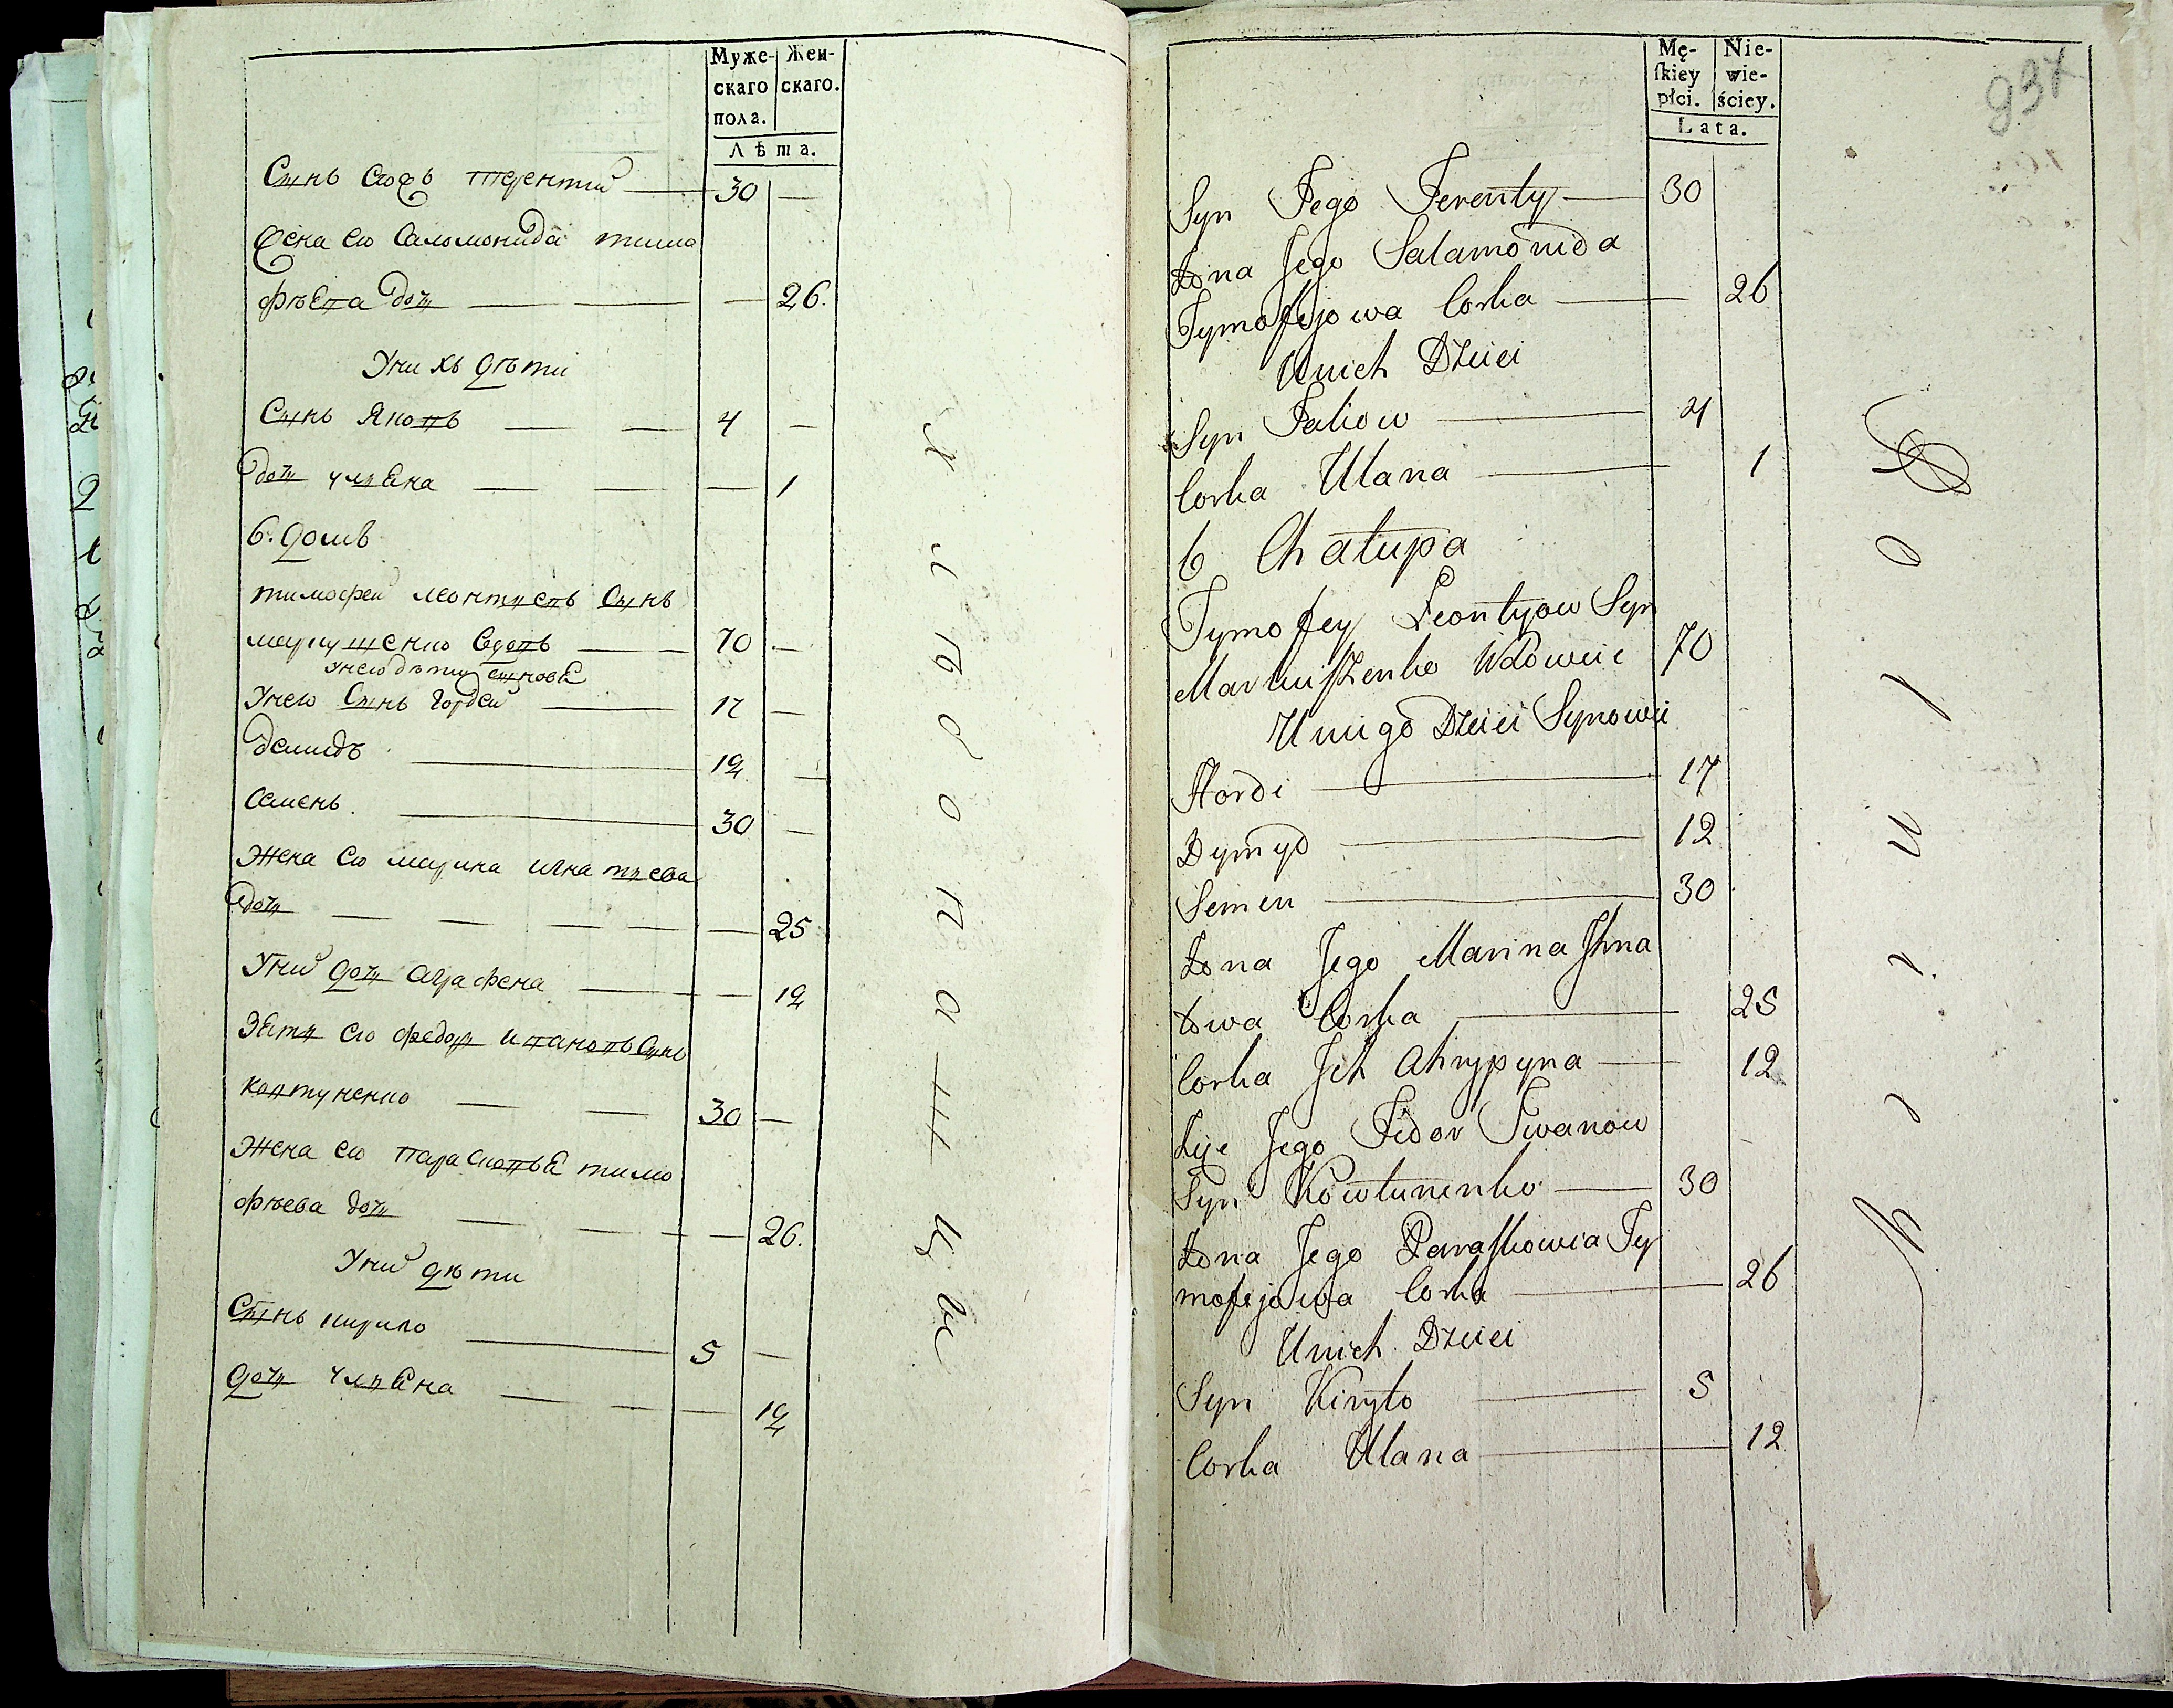 Муже-
скаго
пола.
Жен-
скаго.
Лѣта.
Сынъ его терентий 30 —
Жена его Саломонида тимо
фѣева дочь — 26.
У нихъ дѣти
Сынъ Яковъ 4 —
дочь ульяна — 1
6. домъ
тимофей леонтьевъ Сынъ
маркушенко вдовъ 70 —
у него дѣти сыновья
У него Сынъ Гордей 17 —
демидъ 12 —
Семенъ. 30 —
Жена его марина игнатьева
дочь — 25
У них дочь аграфена — 12
Зять его федоръ ивановъ Сынъ
ковтуненко 30 —
Жена его парасковья тимо
фѣева дочь — 26.
У них дѣти
Сынъ кирило 5 —
дочь ульяна — 12
Mę-
ſkiey
płci.
Nie-
wie-
ściey.
Lata.
937
Syn Jego Terenty 30
Żona Jego Salamonida
Tymofejowa Corka 26
U nich Dzieci
Syn Jakow 4
Corka Ulana 1
6 Chałupa
Tymofey Leontyow Syn
Markuſzenko Wdowiec 70
U niego Dzieci Synowie
Hordi 17
Dymyd 12
Semen 30
Żona Jego Marina Ihna
towa Corka 25
Corka Ich Ahrypyna 12
Zięć Jego Fidor Iwanow
Syn Kowtunenko 30
Żona Jego Paraſkowia Ty
mofejowa Corka 26
U nich Dzieci
Syn Kiryło 5
Corka Ulana 12